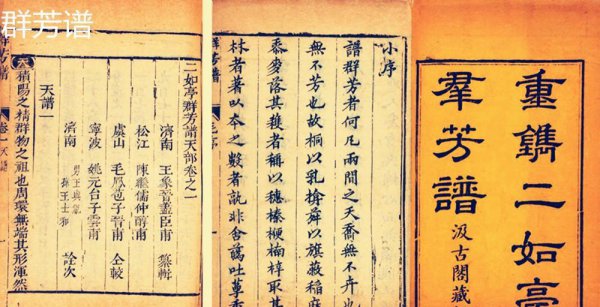 群芳谱
重鐫二如亭
羣芳譜
汲古閣藏
小序
譜群芳者何凡兩間之天喬無不卉也
無不芳也故桐以乳擒舜以旗薇稻麻
黍麥落其穫者稱以穗榛栭梓取其
林者著以本之數者孰非含萼吐華
二如亭群芳譜天部卷之一
濟南 王象晉藎臣甫 纂輯
松江 陳繼儒仲醇甫
虞山 毛鳳苞子晉甫 仝較
寧波 姚元台子雲甫
濟南 男王與齡 孫王士和 詮次
天譜一
積陽之精群物之祖也周環無端其形渾然
群芳譜
卷一天譜